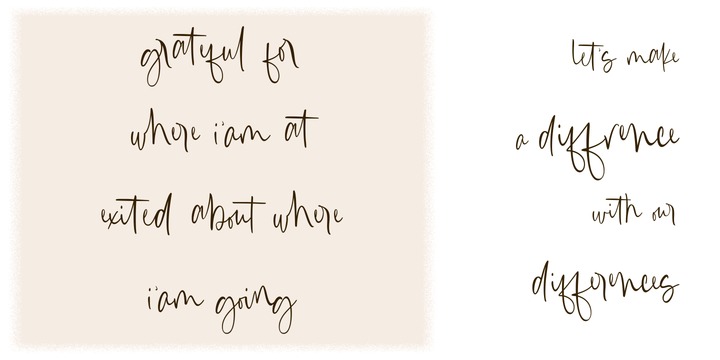 gratyful for
where i'am at
exited about where
i'am going
let's make
a diffrence
with our
differences